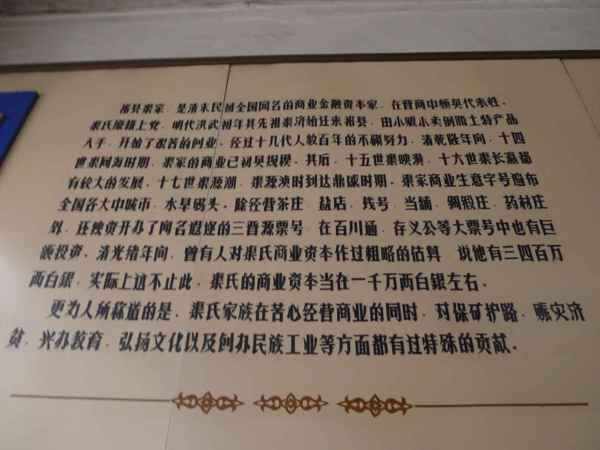 祁县渠家，是清末民初全国闻名的商业金融资本家，在晋商中颇具代表性。
渠氏原籍上党，明代洪武初年其先祖渠济始迁来祁县，由小贩小卖钢而土特产品
入手，开始了艰苦的创业，经过十几代人数百年的不懈努力，清乾隆年间，十四
世渠同海时期，渠家的商业已初具规模，其后，十五世渠映潢，十六世渠长嬴都
有较大的发展，十七世渠源潮、渠源浈时到达鼎盛时期，渠家商业生意字号遍布
全国各大中城市、水旱码头，除经营茶庄、盐店、钱号、当铺、绸缎庄、药材庄
外，还独资开办了闻名遐迩的三晋源票号，在百川通、存义公等大票号中也有巨
额投资，清光绪年间，曾有人对渠氏商业资本作过粗略的估料，说他有三四百万
两白银，实际上远不止此，渠氏的商业资本当在一千万两白银左右。
更为人所称道的是，渠氏家族在苦心经营商业的同时，对保矿护路、赈灾济
贫、兴办教育、弘扬文化以及创办民族工业等方面都有过特殊的贡献。